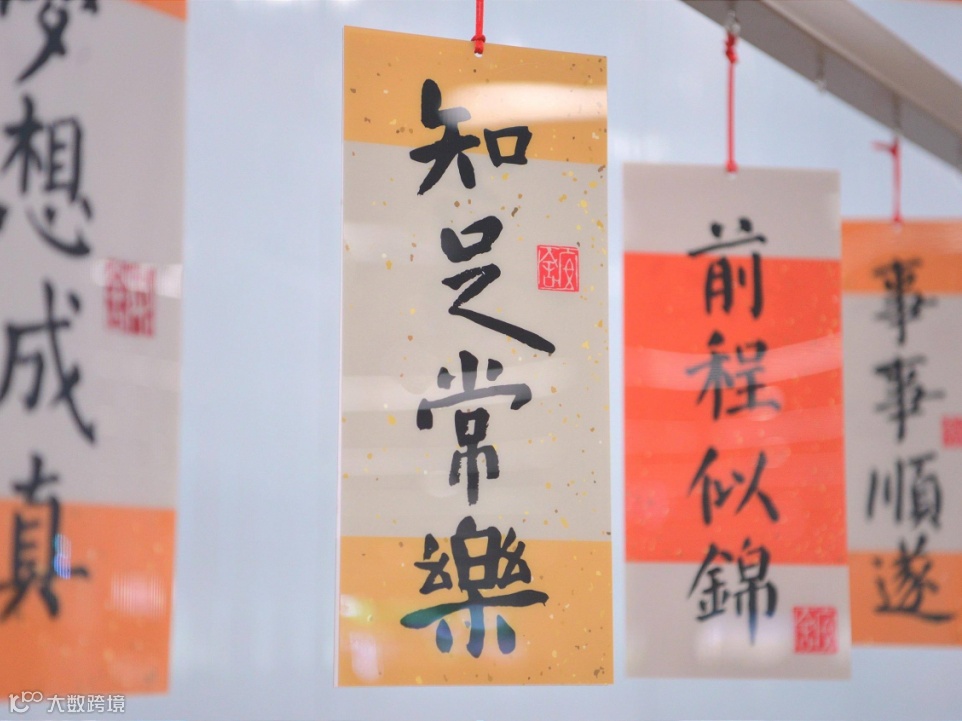 梦想成真
知足常樂
前程似錦
事事順遂
大数跨境